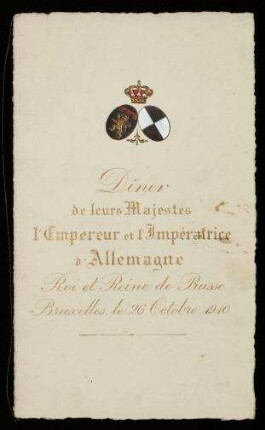 Dîner
de leurs Majestés
l'Empereur et l'Impératrice
d'Allemagne
Roi et Reine de Prusse
Bruxelles, le 26 Octobre, 1910